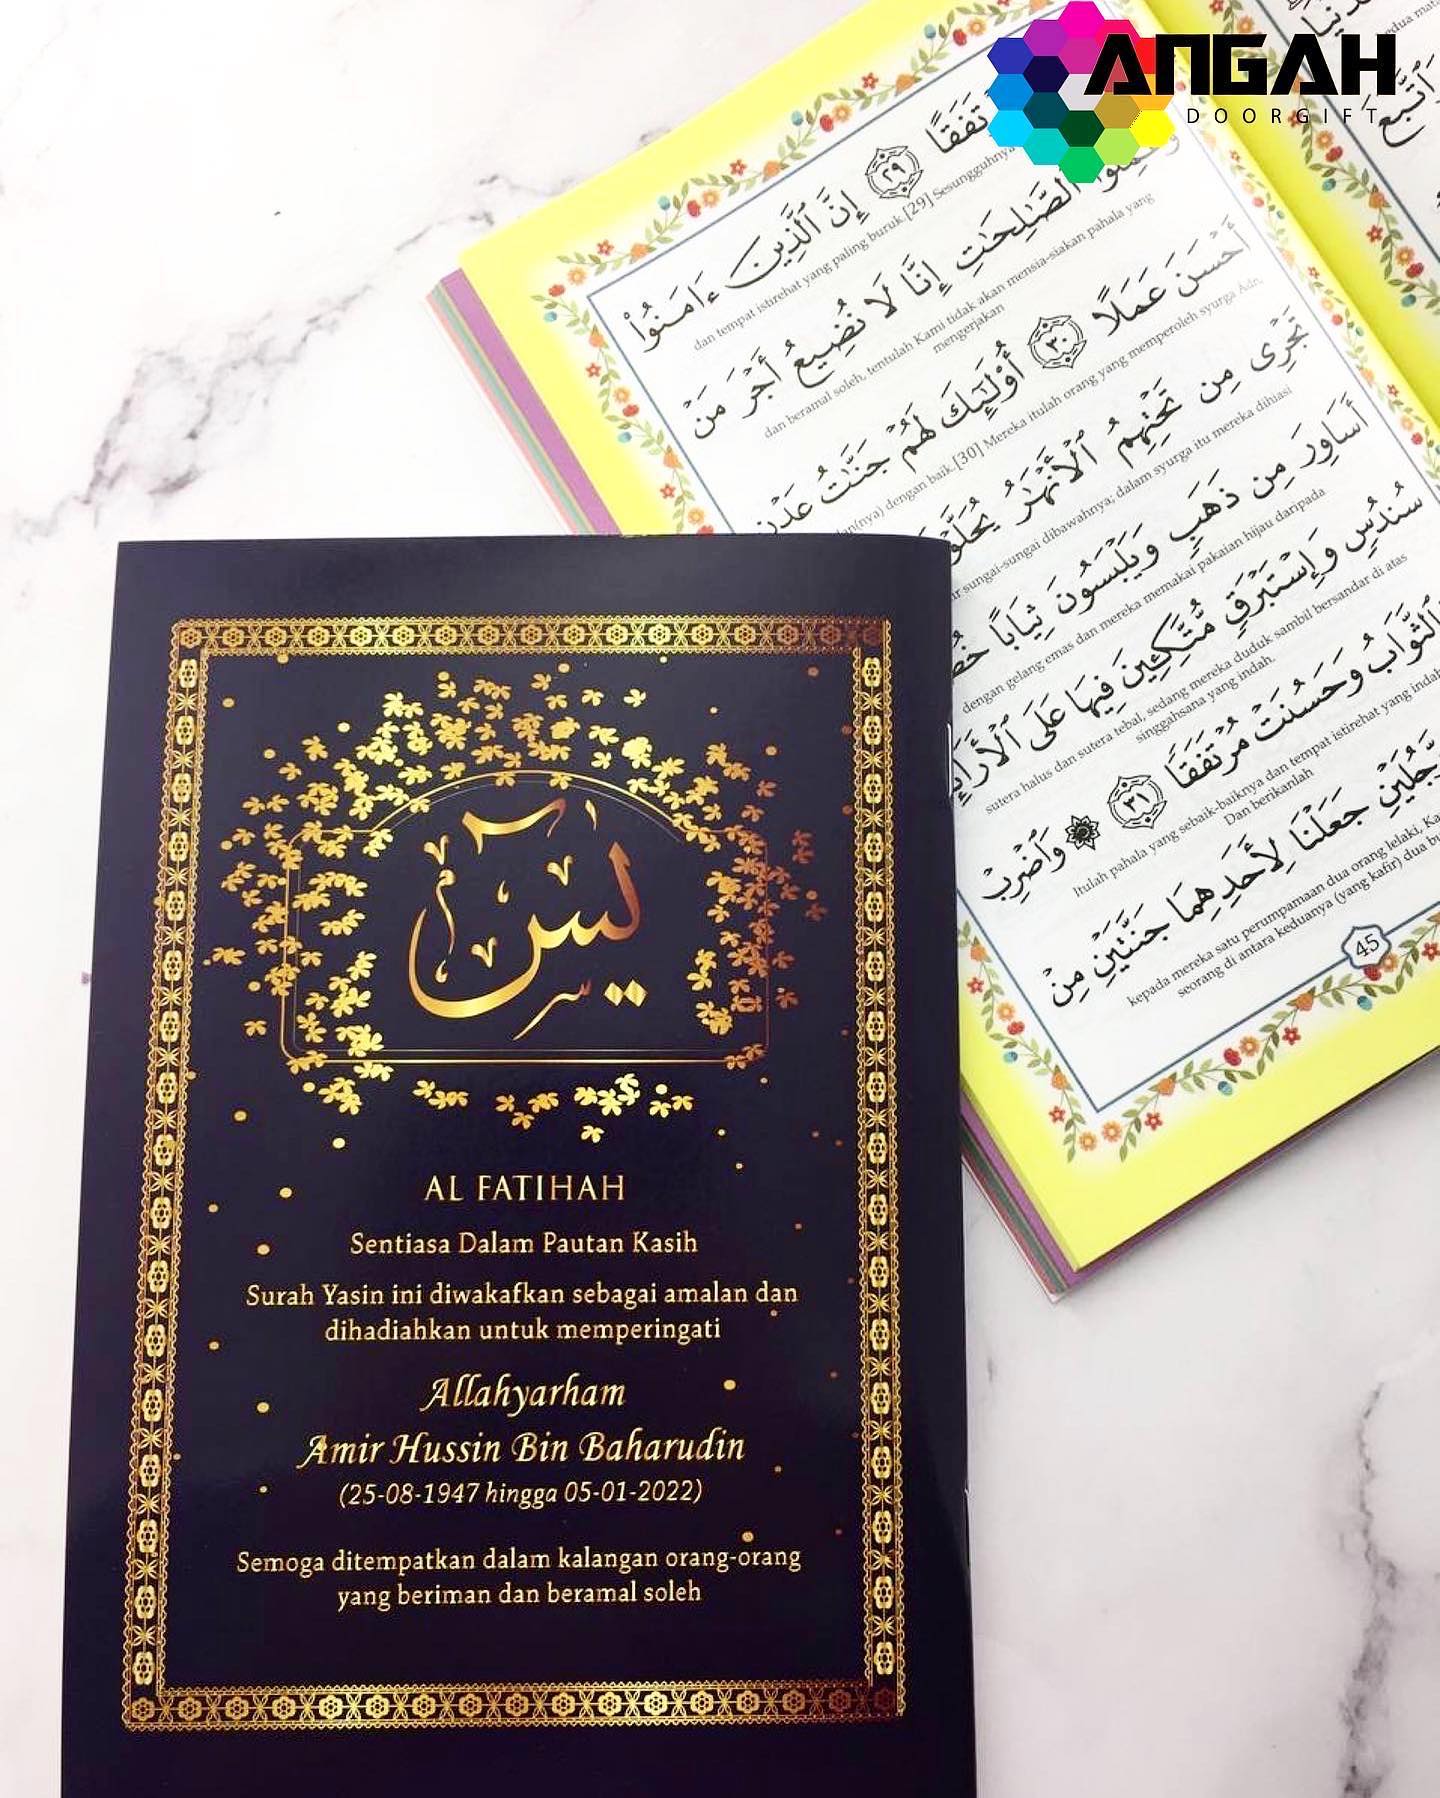 ANGAH
DOORGIFT
تَفَقًا ٢٩ إِنَّ ٱلَّذِينَ ءَامَنُوا۟
dan tempat istirehat yang paling buruk.[29] Sesungguhnya
ٱلصَّـٰلِحَـٰتِ إِنَّا لَا نُضِيعُ أَجْرَ مَنْ
dan beramal soleh, tentulah Kami tidak akan mensia-siakan pahala yang
mengerjakan
أَحْسَنَ عَمَلًا ٣٠ أُو۟لَـٰٓئِكَ لَهُمْ جَنَّـٰتُ عَدْنٍ
dengan baik.[30] Mereka itulah orang yang memperoleh syurga Adn,
تَجْرِى مِن تَحْتِهِمُ ٱلْأَنْهَـٰرُ يُحَلَّوْ
sungai-sungai dibawahnya; dalam syurga itu mereka dihiasi
أَسَاوِرَ مِن ذَهَبٍ وَيَلْبَسُونَ ثِيَابًا
dengan gelang emas dan mereka memakai pakaian hijau daripada
سُندُسٍ وَإِسْتَبْرَقٍ مُّتَّكِـِٔينَ فِيهَا عَلَى ٱلْأَرَا
sutera halus dan sutera tebal, sedang mereka duduk sambil bersandar di atas
singgahsana yang indah.
ٱلثَّوَابُ وَحَسُنَتْ مُرْتَفَقًا ٣١ وَٱضْرِبْ
Itulah pahala yang sebaik-baiknya dan tempat istirehat yang indah
Dan berikanlah
رَّجُلَيْنِ جَعَلْنَا لِأَحَدِهِمَا جَنَّتَيْنِ مِنْ
kepada mereka satu perumpamaan dua orang lelaki, Ka
seorang di antara keduanya (yang kafir) dua bu
45
يس
AL FATIHAH
Sentiasa Dalam Pautan Kasih
Surah Yasin ini diwakafkan sebagai amalan dan
dihadiahkan untuk memperingati
Allahyarham
Amir Hussin Bin Baharudin
(25-08-1947 hingga 05-01-2022)
Semoga ditempatkan dalam kalangan orang-orang
yang beriman dan beramal soleh